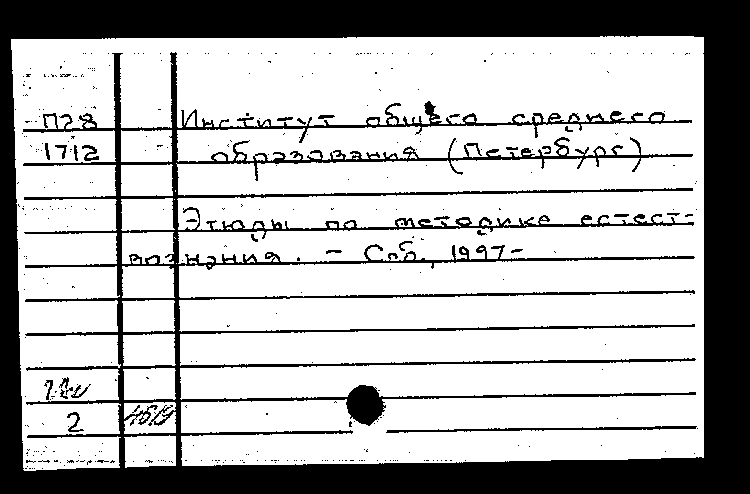 П28 Институт общего среднего
1712 образования (Петербург)
Этюды по методике естест-
вознания. - Спб., 1997-
2